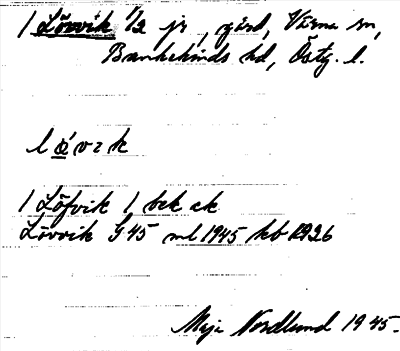 / Lövvik 1/2 jr, gård, Värna sn,
Bankekinds hd, Östg. l.
l ö́ v ɪ k
/ Löfvik / bek ek
Lövvik G 45 ml 1945 hb 1926
Maja Nordlund 1945.